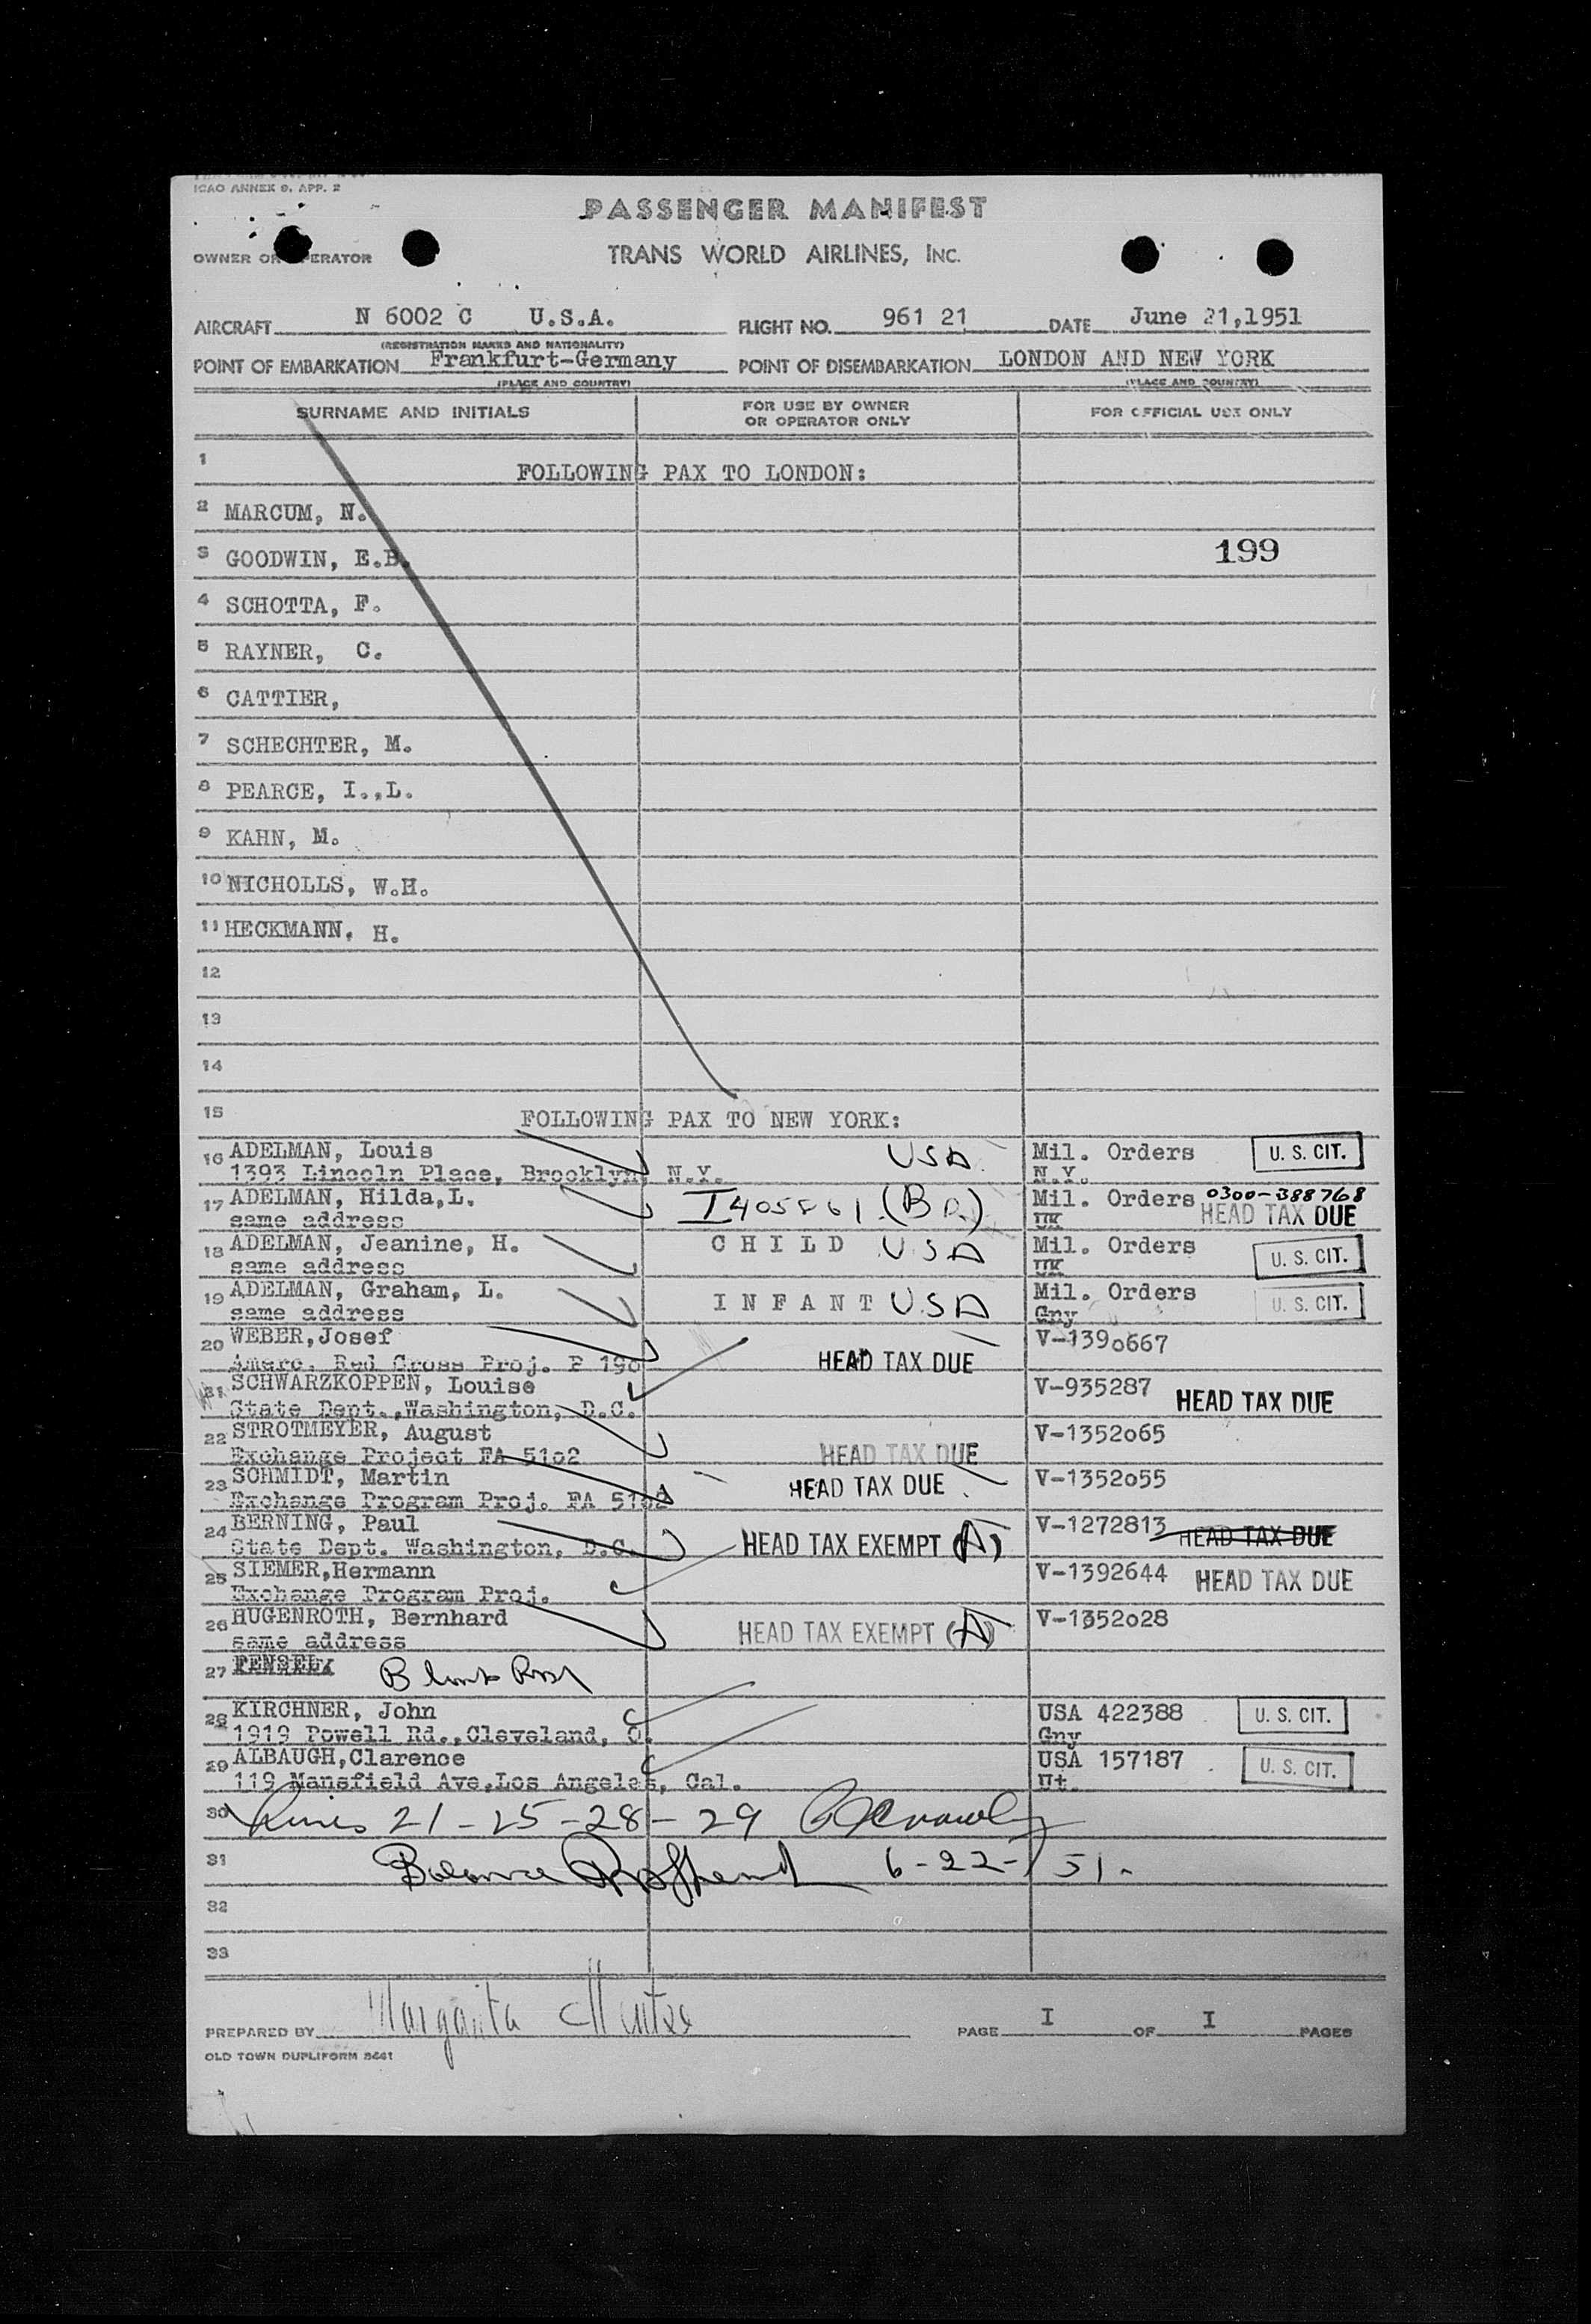 ICAO ANNEX 9, APP. 2
PASSENGER MANIFEST
OWNER OR OPERATOR TRANS WORLD AIRLINES, INC.
AIRCRAFT N 6002 C U.S.A. FLIGHT NO. 961 21 DATE June 21,1951
(REGISTRATION MARKS AND NATIONALITY)
POINT OF EMBARKATION Frankfurt-Germany POINT OF DISEMBARKATION LONDON AND NEW YORK
(PLACE AND COUNTRY) (PLACE AND COUNTRY)
SURNAME AND INITIALS FOR USE BY OWNER OR OPERATOR ONLY FOR OFFICIAL USE ONLY
1 FOLLOWING PAX TO LONDON:
2 MARCUM, N.
3 GOODWIN, E.B. 199
4 SCHOTTA, F.
5 RAYNER, C.
6 CATTIER,
7 SCHECHTER, M.
8 PEARCE, I.,L.
9 KAHN, M.
10 NICHOLLS, W.H.
11 HECKMANN, H.
12
13
14
15 FOLLOWING PAX TO NEW YORK:
16 ADELMAN, Louis USA Mil. Orders U. S. CIT.
1393 Lincoln Place, Brooklyn, N.Y. N.Y.
17 ADELMAN, Hilda,L. I405861 (B P.) Mil. Orders 0300-388768
same address UK HEAD TAX DUE
18 ADELMAN, Jeanine, H. CHILD USA Mil. Orders U. S. CIT.
same address UK
19 ADELMAN, Graham, L. INFANT USA Mil. Orders U. S. CIT.
same address Gny
20 WEBER,Josef HEAD TAX DUE V-1390667
Amerc. Red Cross Proj. P 190
21 SCHWARZKOPPEN, Louise V-935287 HEAD TAX DUE
State Dept.,Washington, D.C.
22 STROTMEYER, August HEAD TAX DUE V-1352065
Exchange Project FA 5102
23 SCHMIDT, Martin HEAD TAX DUE V-1352055
Exchange Program Proj. FA 5102
24 BERNING, Paul HEAD TAX EXEMPT (A) V-1272813 HEAD TAX DUE
State Dept. Washington, D.C.
25 SIEMER,Hermann V-1392644 HEAD TAX DUE
Exchange Program Proj.
26 HUGENROTH, Bernhard HEAD TAX EXEMPT (A) V-1352028
same address
27 FENSEL,
28 KIRCHNER, John USA 422388 U. S. CIT.
1919 Powell Rd.,Cleveland, O. Gny
29 ALBAUGH,Clarence USA 157187 U. S. CIT.
119 Mansfield Ave,Los Angeles, Cal. Ut.
30 Lines 21-25-28-29
31 Balance 6-22-51.
32
33
PREPARED BY Margarita PAGE I OF I PAGES
OLD TOWN DUPLIFORM 8441